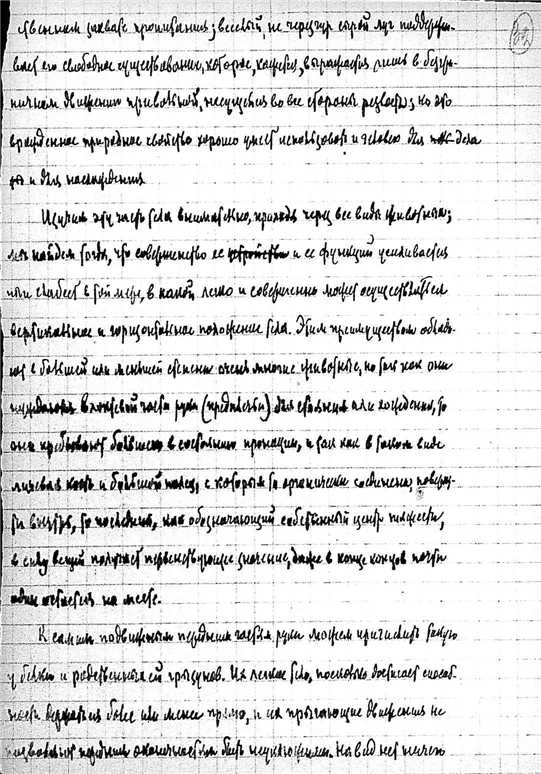 ственном захвате пропитания; веселый не чересчур сырой луг поддержи-
вает его свободное существование, которое, кажется, выражается лишь в безгра-
ничном движении привольной, несущейся во все стороны резвости; но это
врожденное природное свойство хорошо умеет использовать и человек для дела
и для наслаждения.
Изучим эту часть тела внимательно, проходя через все виды животных;
мы найдем тогда, что совершенство ее устройства и ее функций усиливается
или слабеет в той мере, в какой легко и совершенно может осуществляться
вертикальное и горизонтальное положение тела. Этим преимуществом облада-
ют в большей или меньшей степени очень многие животные, но так как они
нуждаются в локтевой части руки (предплечья) для стояния или хождения, то
они пребывают большею в состоянии пронации, и так как в таком виде
лучевая кость и большой палец, с которым та органически соединена, поверну-
ты внутрь, то последний, как обозначающий собственный центр тяжести,
в силу вещей получает первенствующее значение, даже в конце концов почти
один остается на месте.
К самым подвижным передним частям руки можем причислить такую
у белки и родственных ей грызунов. Их легкое тело, поскольку достигает способ-
ности держаться более или менее прямо, и их прыгающие движения не
позволяют передним оконечностям быть неуклюжими. На вид нет ничего